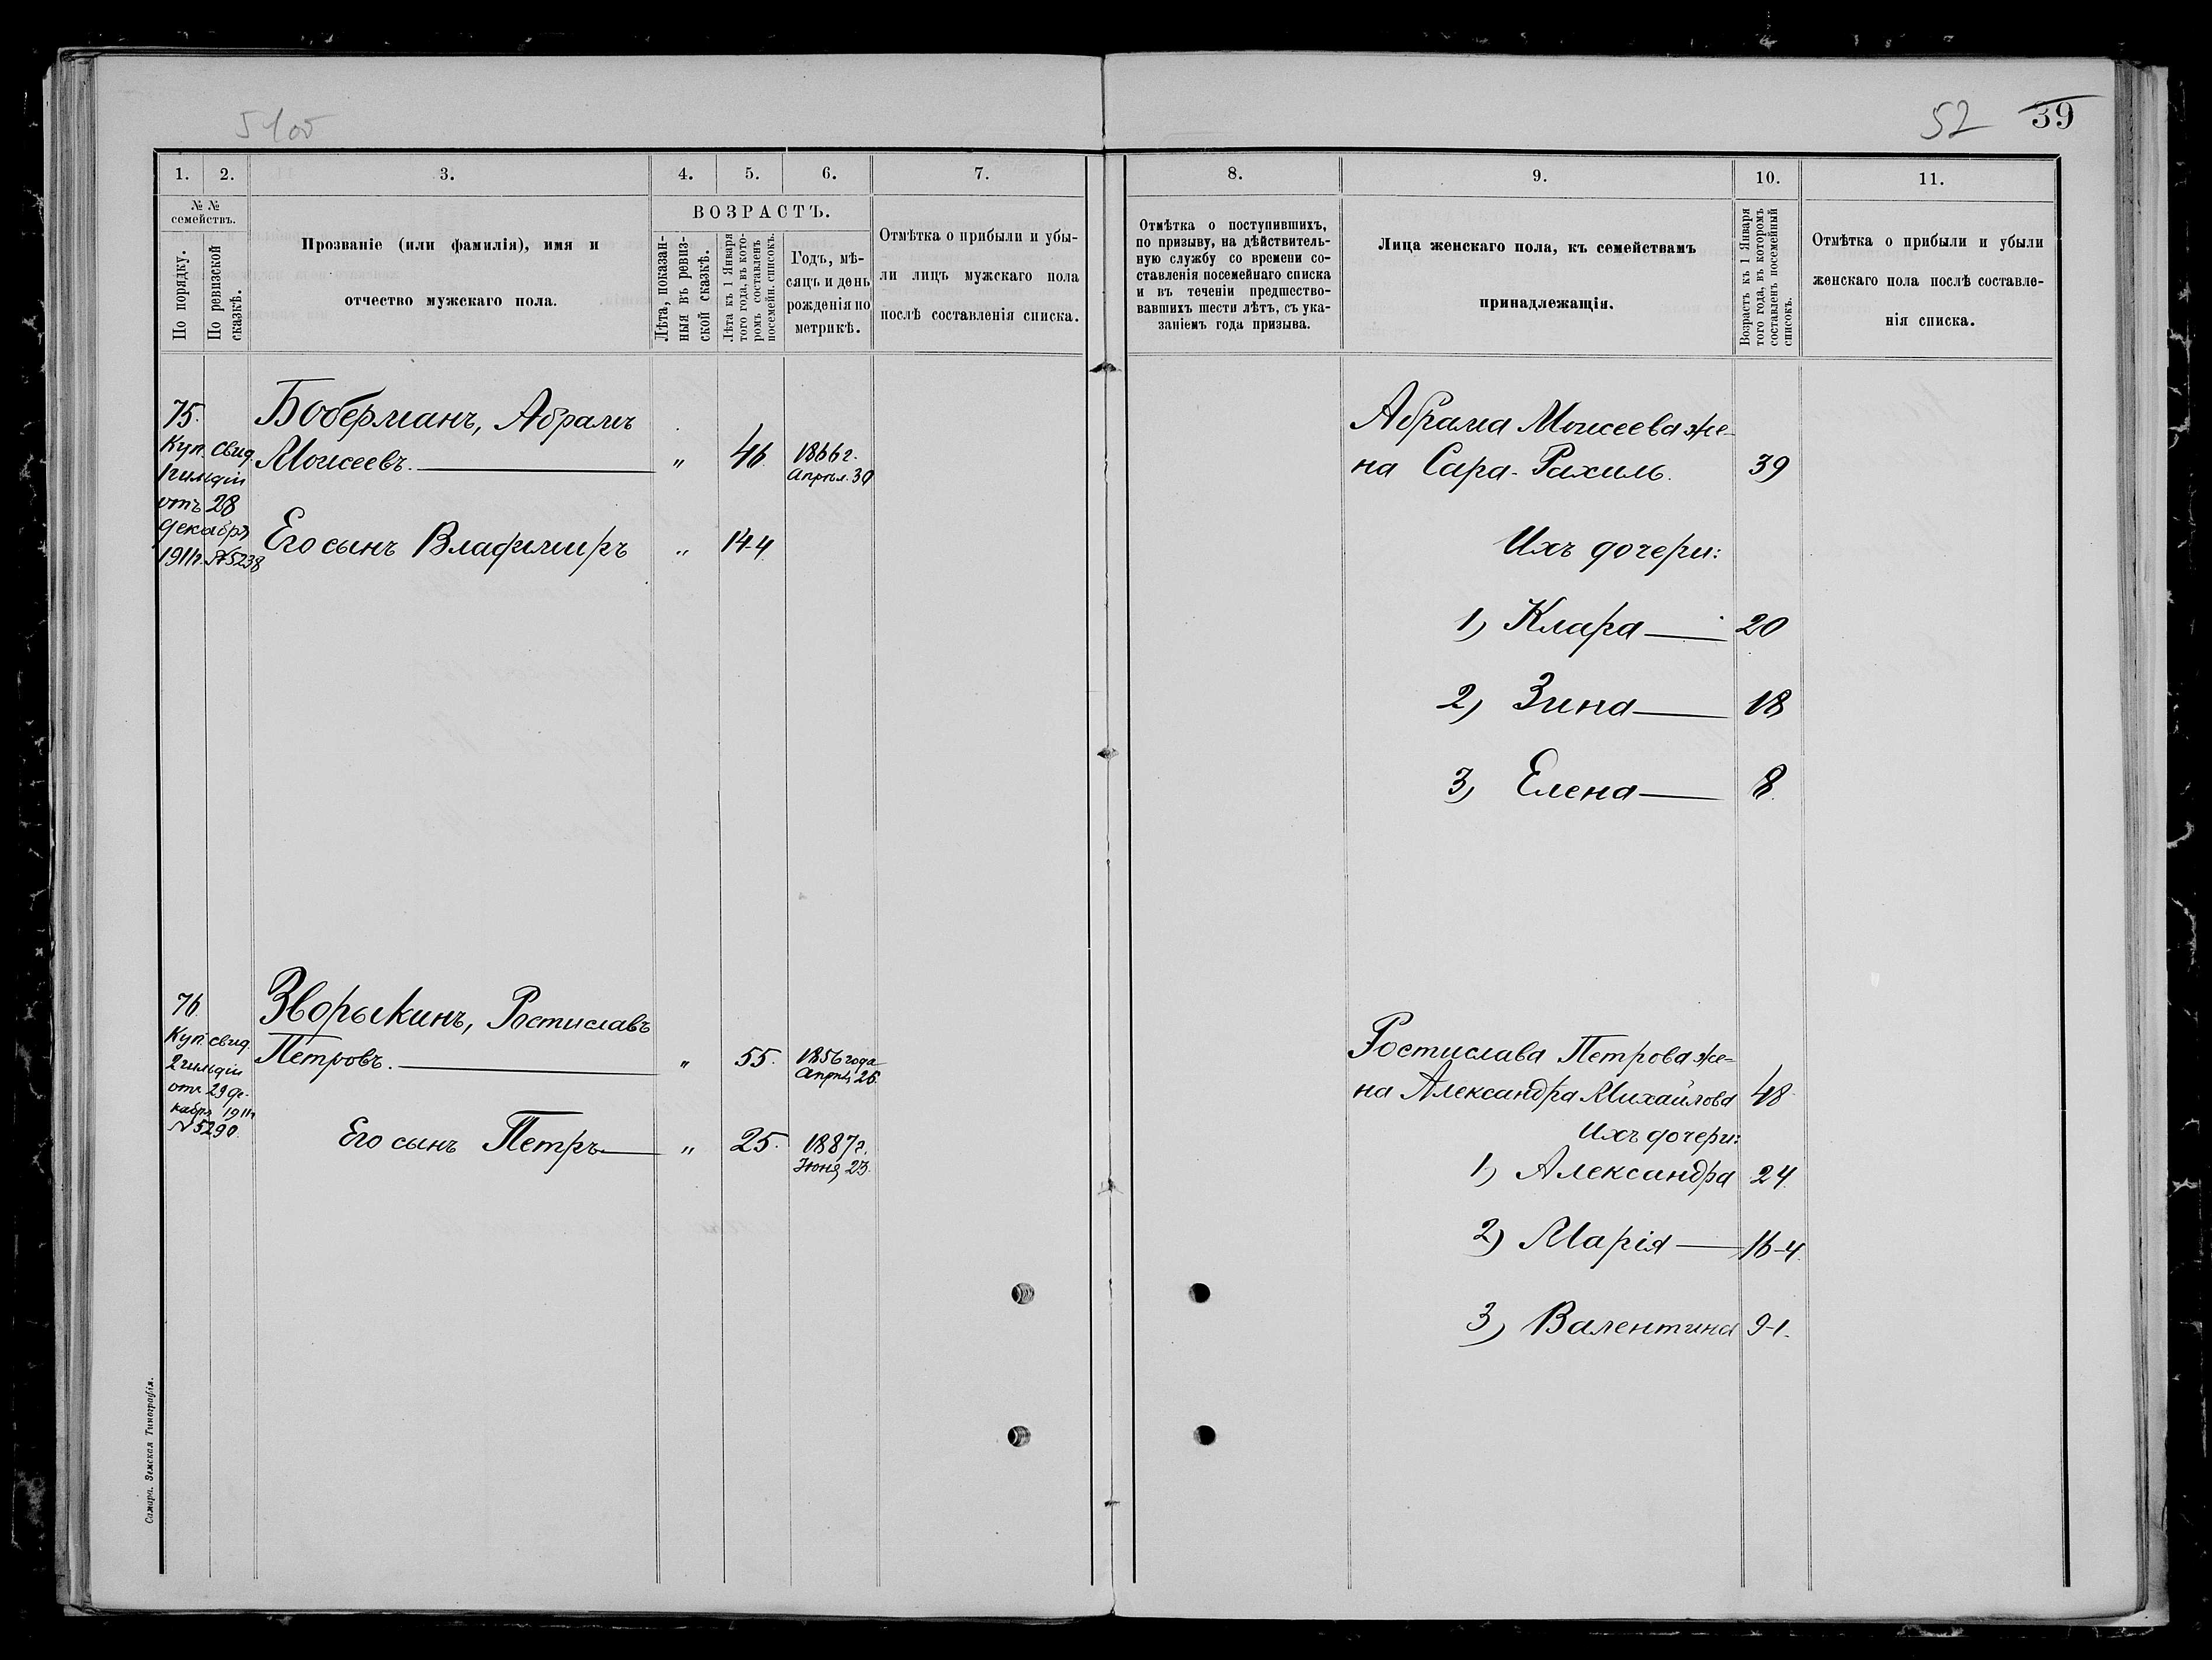 52 39
1. 2. 3. 4. 5. 6. 7.
№ № семействъ.
По порядку.
По ревизской сказкѣ.
Прозваніе (или фамилія), имя и
отчество мужскаго пола.
ВОЗРАСТЪ.
Лѣта, показан-
ныя въ ревиз-
ской сказкѣ.
Лѣта къ 1 Января
того года, въ кото-
ромъ составленъ
посемейн. списокъ.
Годъ, мѣ-
сяцъ и день
рожденія по
метрикѣ.
Отмѣтка о прибыли и убы-
ли лицъ мужскаго пола
послѣ составленія списка.
75.
Куп. свид.
1 гильдіи
отъ 28
декабря
1911г. №5238
Боберманъ, Абрамъ
Моисеевъ. „ 46. 1866г.
Апрѣл. 30
Его сынъ Владиміръ „ 14-4
76.
Куп. свид.
2 гильдіи
отъ 29 де-
кабря 1911г
№5290.
Зворыкинъ, Ростиславъ
Петровъ. „ 55. 1856 года
Апрѣл. 26.
Его сынъ Петръ „ 25. 1887г.
Іюня 23.
Самара. Земская Типографія.
8. 9. 10. 11.
Отмѣтка о поступившихъ,
по призыву, на дѣйствитель-
ную службу со времени со-
ставленія посемейнаго списка
и въ теченіи предшество-
вавшихъ шести лѣтъ, съ ука-
заніемъ года призыва.
Лица женскаго пола, къ семействамъ
принадлежащія.
Возрастъ къ 1 Января
того года, въ которомъ
составленъ посемейный
списокъ.
Отмѣтка о прибыли и убыли
женскаго пола послѣ составле-
нія списка.
Абрама Моисеева же-
на Сара-Рахиль. 39
Ихъ дочери:
1) Клара 20
2) Зина 18
3) Елена 8.
Ростислава Петрова же-
на Александра Михайлова 48
Ихъ дочери:
1) Александра 24
2) Марія 16-4.
3) Валентина 9-1.